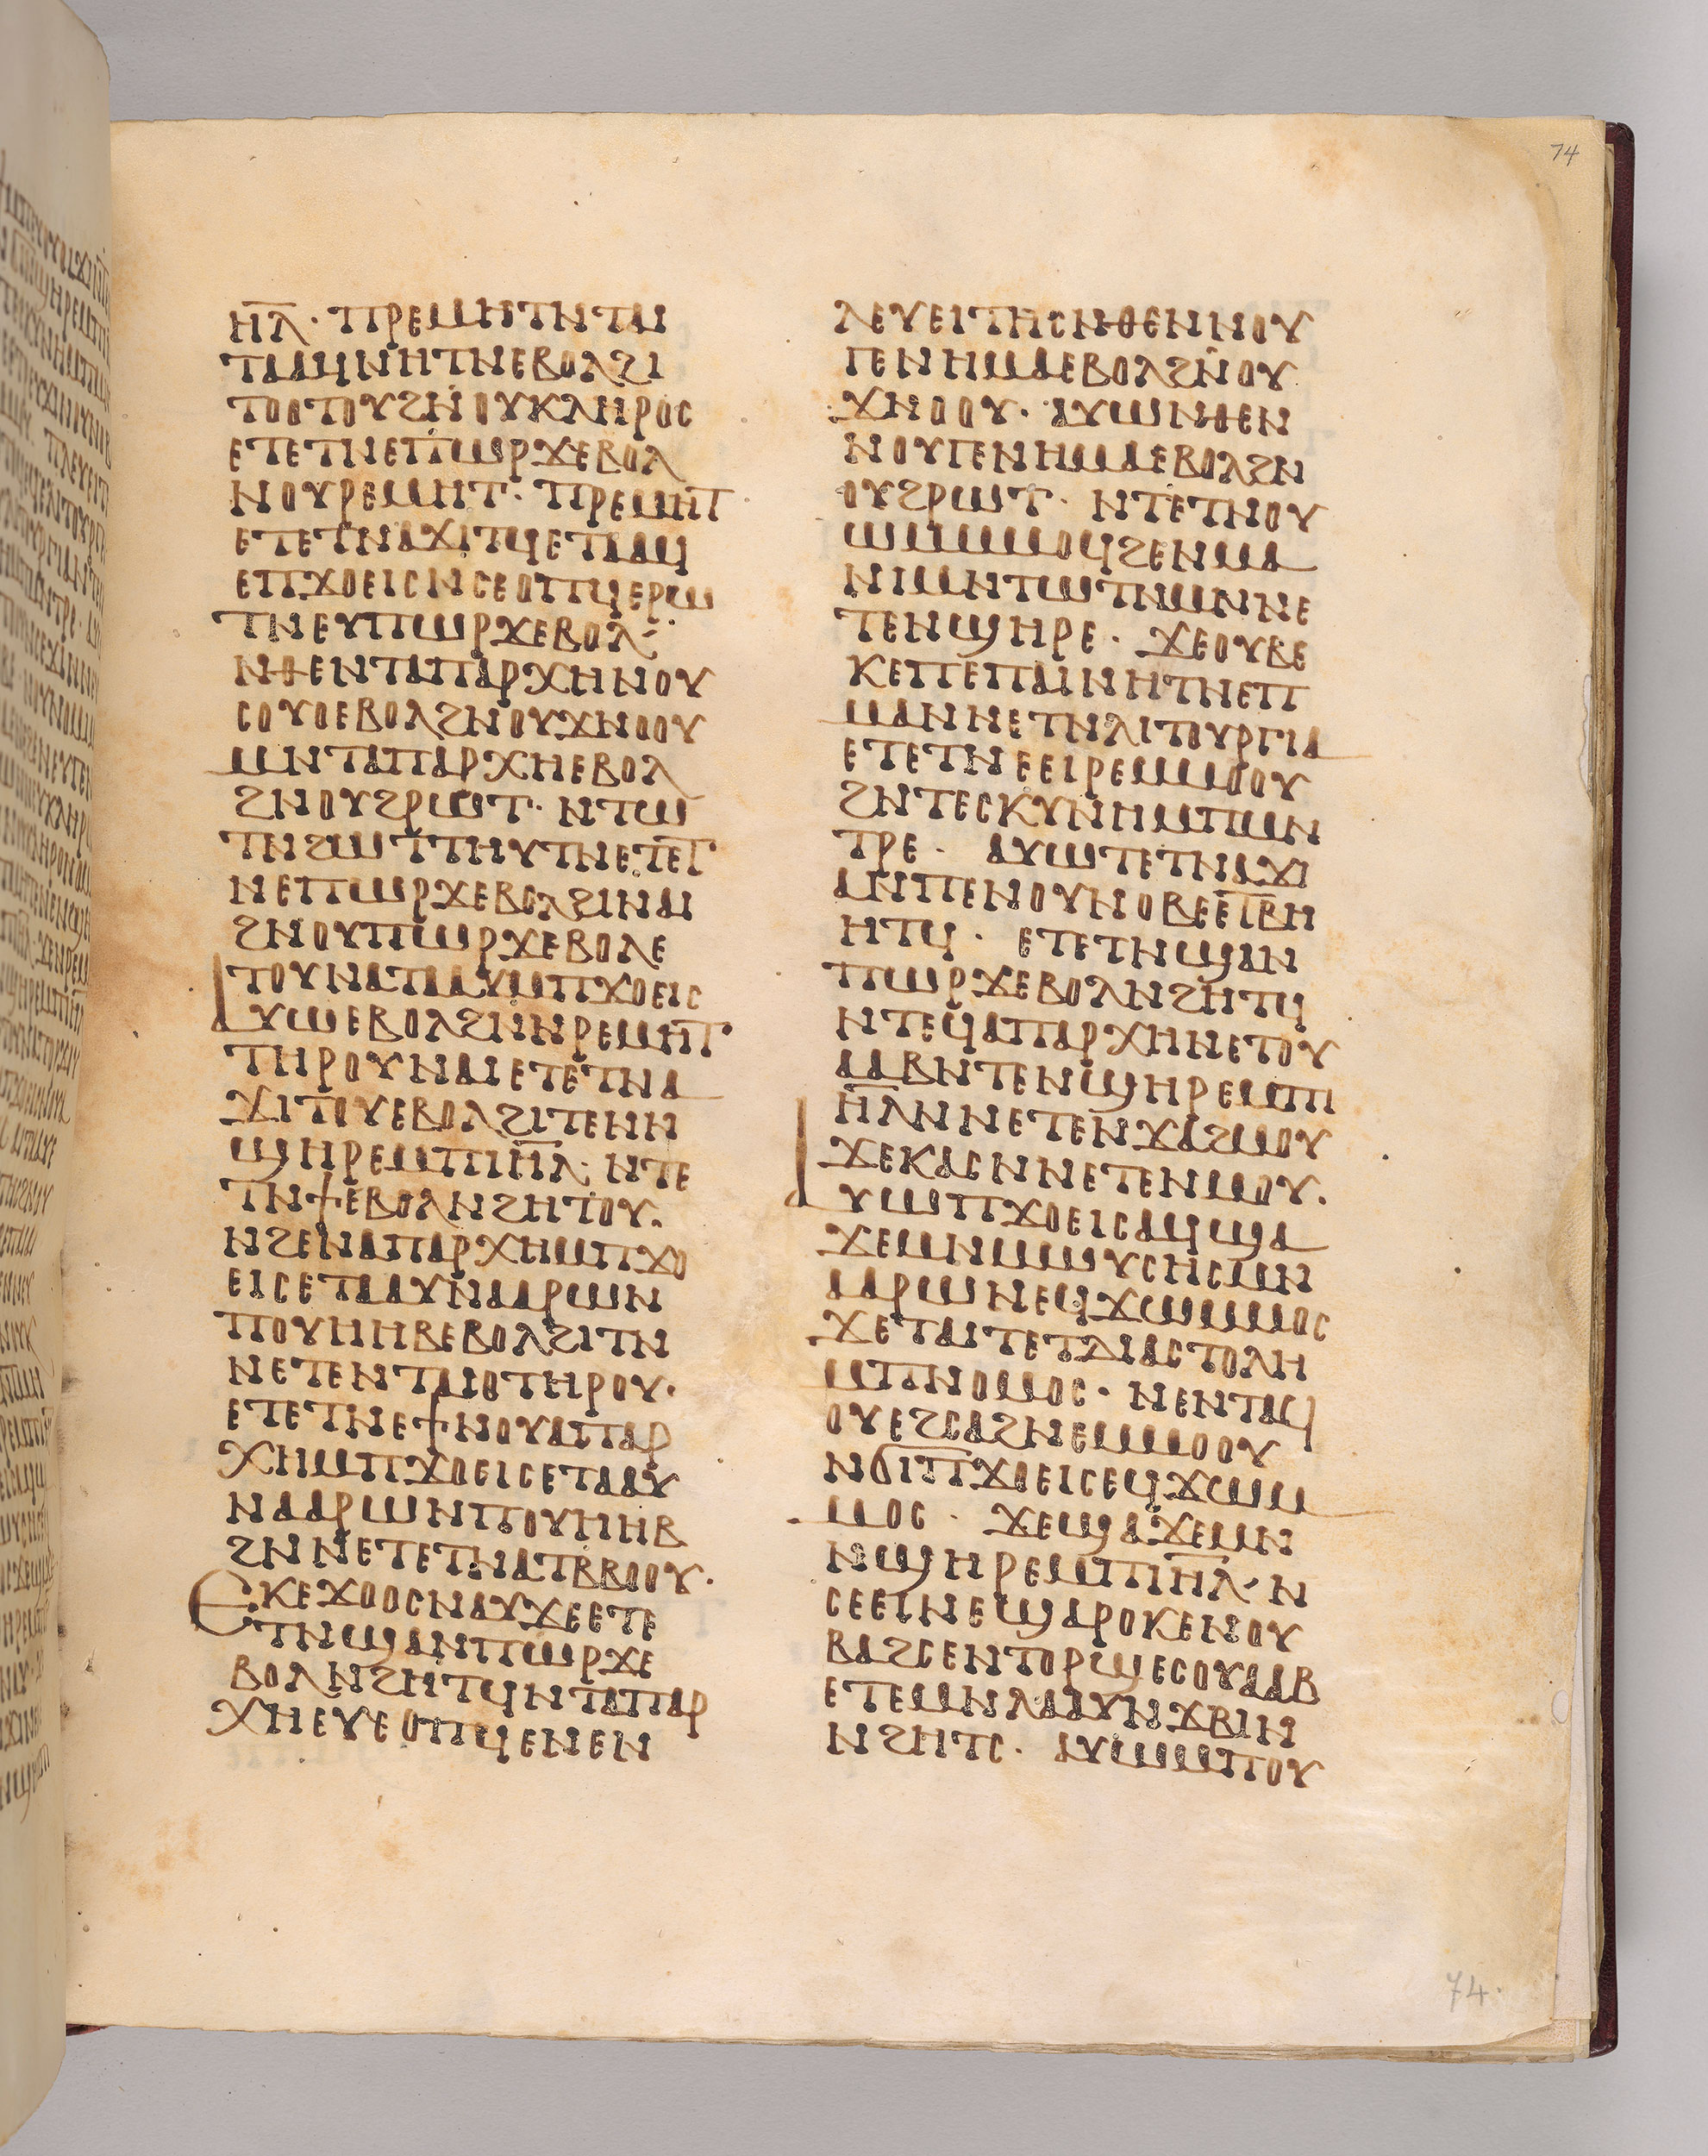 74
ⲏ̅ⲗ̅· ⲡⲣⲉⲙⲏⲧⲛⲧⲁⲓ
ⲧⲁⲁϥⲛⲏⲧⲛⲉⲃⲟⲗϩⲓ
ⲧⲟⲟⲧⲟⲩϩⲛⲟⲩⲕⲗⲏⲣⲟⲥ
ⲉⲧⲉⲧⲛⲉⲡⲱⲣϫⲉⲃⲟⲗ
ⲛⲟⲩⲣⲉⲙⲏⲧ· ⲡⲣⲉⲙⲏⲧ
ⲉⲧⲉⲧⲛⲁϫⲓⲧϥⲉⲧⲁⲁϥ
ⲉⲡϫⲟⲉⲓⲥⲛⲥⲉⲟⲡϥⲉⲣⲱ
ⲧⲛⲉⲩⲡⲱⲣϫⲉⲃⲟⲗ·
ⲛⲑⲉⲛⲧⲁⲡⲁⲣⲭⲏⲛⲟⲩ
ⲥⲟⲩⲟⲉⲃⲟⲗϩⲛⲟⲩϫⲛⲟⲟⲩ
ⲙⲛⲧⲁⲡⲁⲣⲭⲏⲉⲃⲟⲗ
ϩⲛⲟⲩϩⲣⲱⲧ· ⲛⲧⲱ
ⲧⲛϩⲱⲧⲧⲏⲩⲧⲛⲉⲧⲉⲧ
ⲛⲉⲡⲱⲣϫⲉⲃⲟⲗϩⲓⲛⲁⲓ
ϩⲛⲟⲩⲡⲱⲣϫⲉⲃⲟⲗⲉ
ⲧⲟⲩⲛⲁⲧⲁⲁⲩⲙⲡϫⲟⲉⲓⲥ
ⲁⲩⲱⲉⲃⲟⲗϩⲛⲛⲣⲉⲙⲏⲧ
ⲧⲏⲣⲟⲩⲛⲁⲓⲉⲧⲉⲧⲛⲁ
ϫⲓⲧⲟⲩⲉⲃⲟⲗϩⲓⲧⲉⲛⲛ
ϣⲏⲣⲉⲙⲡⲓⲏ̅ⲗ̅· ⲛⲧⲉ
ⲧⲛϯⲉⲃⲟⲗⲛϩⲏⲧⲟⲩ.
ⲛϩⲉⲛⲁⲡⲁⲣⲭⲏⲙⲡϫⲟ
ⲉⲓⲥⲉⲧⲁⲁⲩⲛⲁⲁⲣⲱⲛ
ⲡⲟⲩⲏⲏⲃⲉⲃⲟⲗϩⲓⲧⲛ
ⲛⲉⲧⲉⲛⲧⲁⲓⲟⲧⲏⲣⲟⲩ·
ⲉⲧⲉⲧⲛⲉϯⲛⲟⲩⲁⲡⲁⲣ
ⲭⲏⲙⲡϫⲟⲉⲓⲥⲉⲧⲁⲁⲩ
ⲛⲁⲁⲣⲱⲛⲡⲟⲩⲏⲏⲃ
ϩⲛⲛⲉⲧⲉⲧⲛⲁⲧⲃⲃⲟⲟⲩ.
ⲉⲕⲉϫⲟⲟⲥⲛⲁⲩϫⲉⲉⲧⲉ
ⲧⲛϣⲁⲛⲡⲱⲣϫⲉ
ⲃⲟⲗⲛϩⲏⲧϥⲛⲧⲁⲡⲁⲣ
ⲭⲏⲉⲩⲉⲟⲡϥⲉⲛⲉⲛ
ⲗⲉⲩⲉⲓⲧⲏⲥⲛⲑⲉⲛⲛⲟⲩ
ⲅⲉⲛⲏⲙⲁⲉⲃⲟⲗϩⲛⲟⲩ
ϫⲛⲟⲟⲩ· ⲁⲩⲱⲛⲑⲉⲛ
ⲛⲟⲩⲅⲉⲛⲏⲙⲁⲉⲃⲟⲗϩⲛ
ⲟⲩϩⲣⲱⲧ· ⲛⲧⲉⲧⲛⲟⲩ
ⲱⲙⲙⲙⲟϥϩⲉⲛⲙⲁ
ⲛⲓⲙⲛⲧⲱⲧⲛⲙⲛⲛⲉ
ⲧⲉⲛϣⲏⲣⲉ· ϫⲉⲟⲩⲃⲉ
ⲕⲉⲡⲉⲡⲁⲓⲛⲏⲧⲛⲉⲡ
ⲙⲁⲛⲛⲉⲧⲛⲗⲓⲧⲟⲩⲣⲅⲓⲁ
ⲉⲧⲉⲧⲛⲉⲉⲓⲣⲉⲙⲙⲟⲟⲩ
ϩⲛⲧⲉⲥⲕⲩⲛⲏⲙⲡⲙⲛ
ⲧⲣⲉ· ⲁⲩⲱⲧⲉⲧⲛⲁϫⲓ
ⲁⲛⲡⲉⲛⲟⲩⲛⲟⲃⲉⲉⲧⲃⲏ
ⲏⲧϥ· ⲉⲧⲉⲧⲛϣⲁⲛ
ⲡⲱⲣϫⲉⲃⲟⲗⲛϩⲏⲧϥ
ⲛⲧⲉϥⲁⲡⲁⲣⲭⲏⲛⲉⲧⲟⲩ
ⲁⲁⲃⲛⲧⲉⲛϣⲏⲣⲉⲙⲡⲓ
ⲏ̅ⲗ̅ⲛⲛⲉⲧⲉⲛϫⲁϩⲙⲟⲩ
ϫⲉⲕⲁⲥⲛⲛⲉⲧⲉⲛⲙⲟⲩ.
ⲁⲩⲱⲡϫⲟⲉⲓⲥⲁϥϣⲁ
ϫⲉⲙⲛⲙⲱⲩⲥⲏⲥⲙⲛ
ⲁⲁⲣⲱⲛⲉϥϫⲱⲙⲙⲟⲥ
ϫⲉⲧⲁⲓⲧⲉⲧⲇⲓⲁⲥⲧⲟⲗⲏ
ⲙⲡⲛⲟⲙⲟⲥ· ⲛⲉⲛⲧⲁϥ
ⲟⲩⲉϩⲥⲁϩⲛⲉⲙⲙⲟⲟⲩ
ⲛϭⲓⲡϫⲟⲉⲓⲥⲉϥϫⲱⲙ
ⲙⲟⲥ· ϫⲉϣⲁϫⲉⲙⲛ
ⲛϣⲏⲣⲉⲙⲡⲓⲏ̅ⲗ̅· ⲛ
ⲥⲉⲉⲓⲛⲉϣⲁⲣⲟⲕⲉⲛⲟⲩ
ⲃⲁϩⲥⲉⲛⲧⲟⲣϣⲉⲥⲟⲩⲁⲁⲃ
ⲉⲧⲉⲙⲛⲗⲁⲁⲩⲛϫⲃⲓⲛ
ⲛϩⲏⲧⲥ· ⲁⲩⲱⲙⲡⲟⲩ
74.